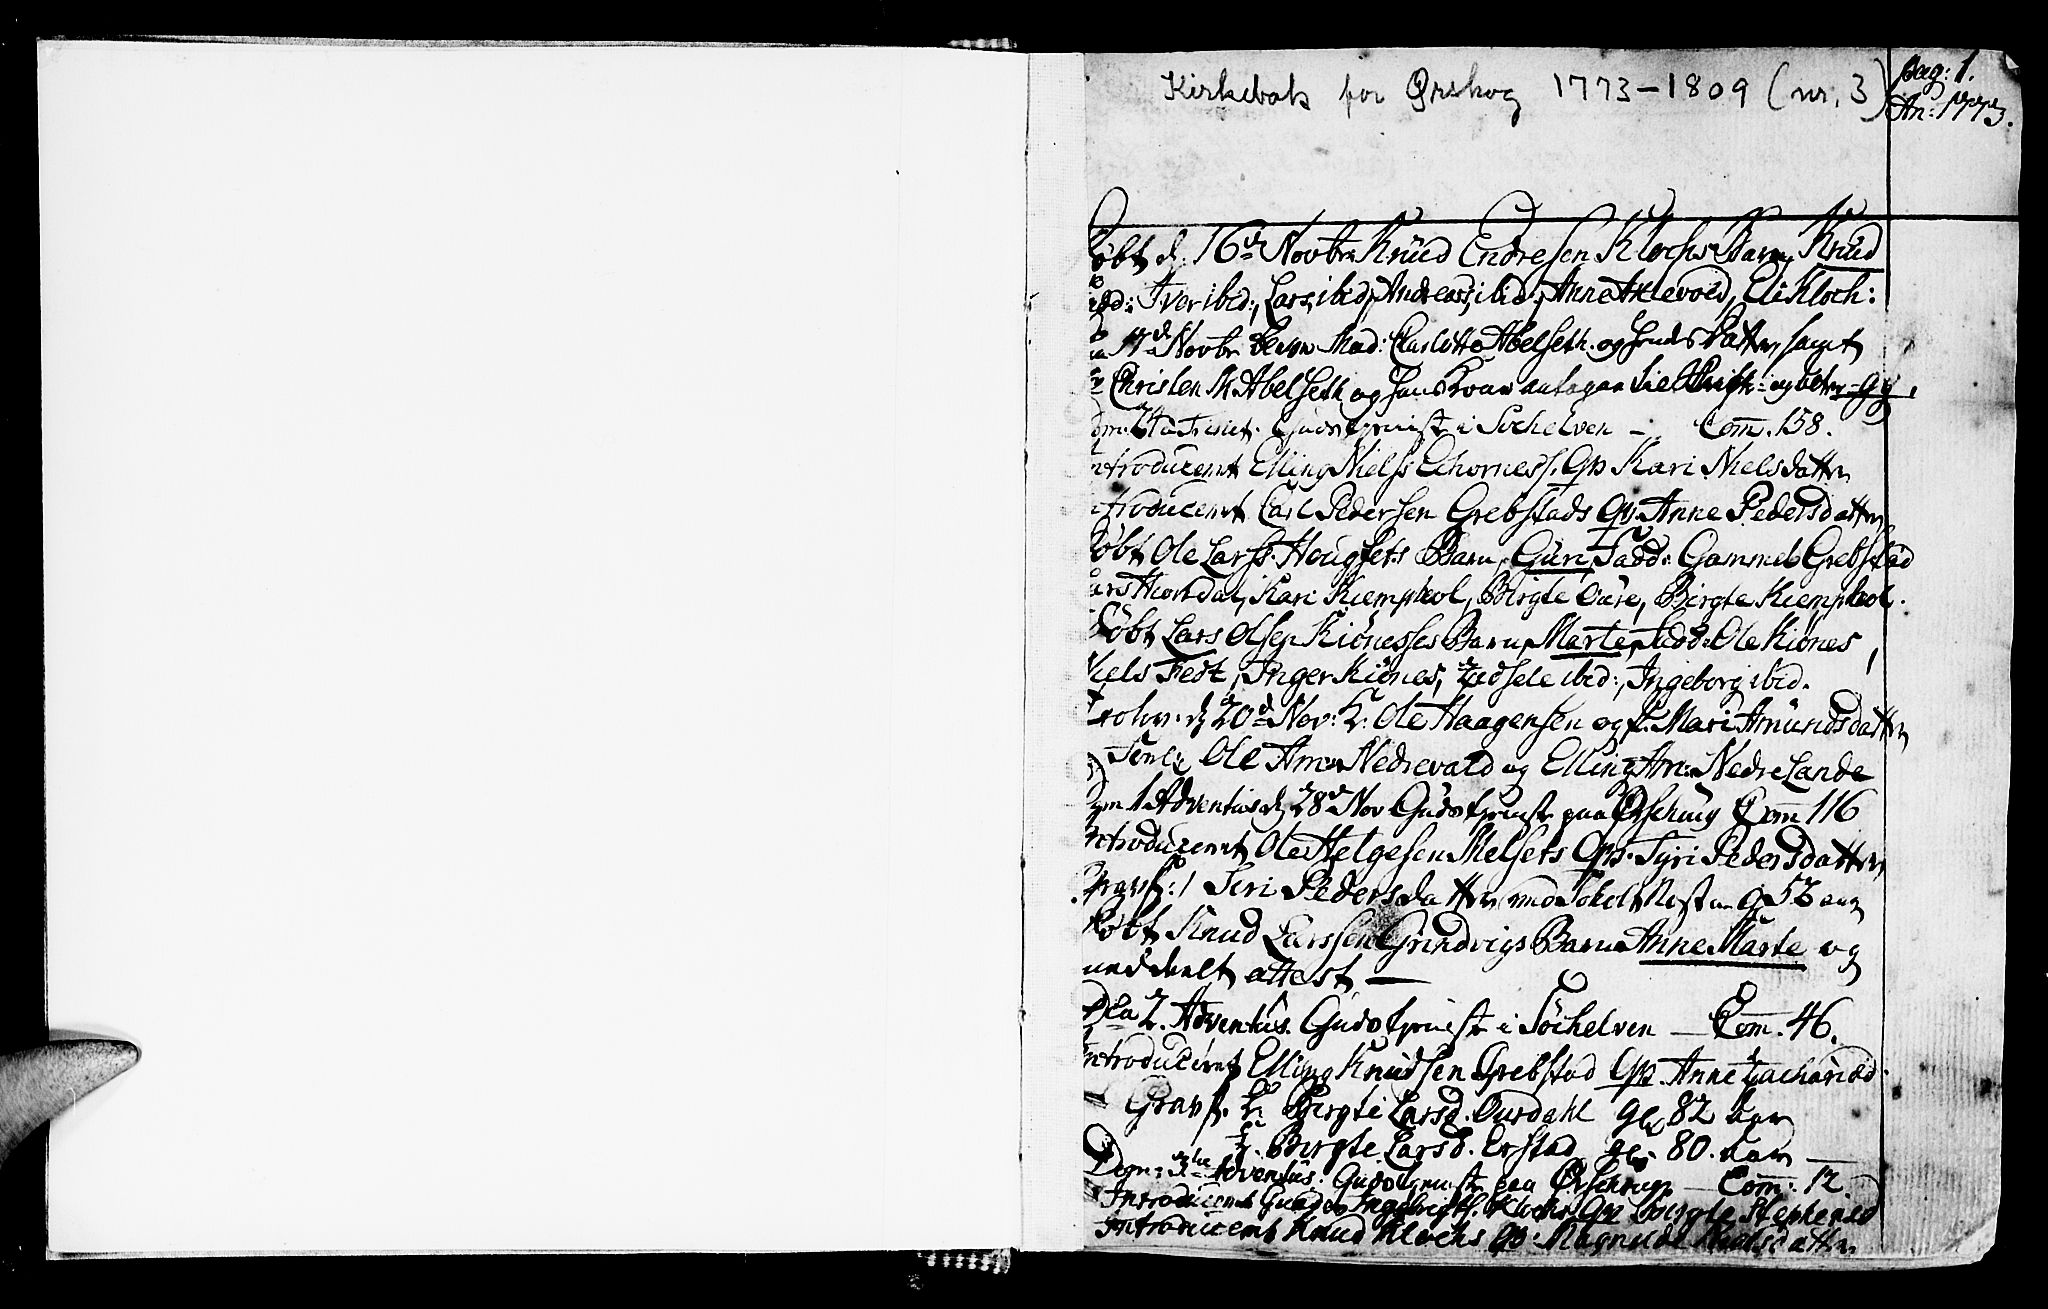 Kirkebok for Ørskog 1773-1809 (nr. 3)
pag: 1.
An: 1773.
Døbt d: 16de Novbr Knud Endresen Klochs Barn, Knud
Fad: Iver ibid:, Lars ibid, Andreas ibid:, Anne Axlevold, Eli Kloch:
17de Novbr Mad: Charlotte Abelseth og Datter, samt
Christen M Abelseth og hans
24 Trinit. Gudstjeneste i Söchelven — Com. 158.
Introduceret Elling Niels Ochornes s. Qv: Kari Nielsdatter
Introduceret Carl Pedersen Grebstads Qv. Anne Pedersdatter
Döbt Ole Larss. Hougsets Barn, Guri, Fadd: Gammel Grebstad
Lars Hiortdal, Kari Kiemphol, Birgte Oure, Birgte Kiemphol.
Döbt Lars Olsen Kiönesses Barn, Marte, Fadd: Ole Kiönes,
Niels Fedt, Inger Kiönes, Zidsele ibid:, Ingeborg ibid.
Trolov. d. 20de Nov: K. Ole Haagensen og P. Mari Amundsdatter
Forl: Ole Am: Nedrevold og Elling Am: Nedre Lande
Dom 1 Adventus d. 28de Nov Gudstjeneste paa Ørschoug Com 116
Introduceret Ole Helgesen Melsets Qv. Tyri Pedersdatter
Gravf: 1 Siri Pedersdatter g 52 aar
Döbt Knud Larssen Grindvigs Barn Anne Marte og
meddeelt attest —
Dca 2. Adventus. Gudstjeneste i Söchelven — Com. 46.
Introduceret Elling Knudsen Grebstad Qv. Anne Zachariæd.
Gravf. K: Birgte Larsd. Ourdahl gl. 82 Aar
K. Birgte Larsd. Erstad gl. 80. Aar —
Dom: 3tie Adventus. Gudstjeneste paa Ørschoug — Com: 12.
Introduceret Gunder Ingebrigts. Klochs Qv Birgte Stephensd
Introduceret Knud Klochs Qv: Magnilde Nielsdatter